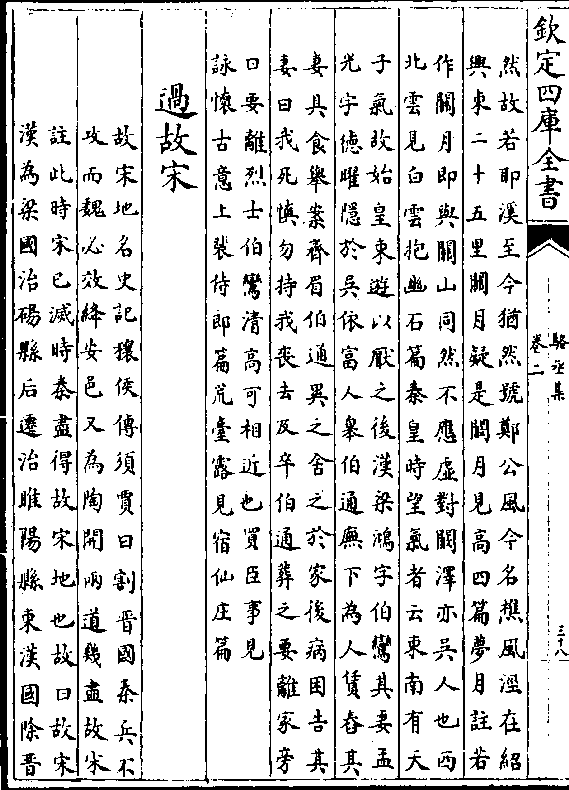 欽定四庫全書
駱丞集
卷二
三十八
然故若耶溪至今猶然號鄭公風今名樵風涇在紹
興東二十五里關月疑是關月見高四篇夢月註若
作關月即與關山同然不應虛對闗澤亦吳人也西
北雲見白雲抱幽石篇秦皇時望氣者云東南有天
子氣故始皇東遊以厭之後漢梁鴻字伯鸞其妻孟
光字德曜隱於吳依富人皋伯通廡下為人賃舂其
妻具食舉案齊眉伯通異之舍之於家後病困告其
妻曰我死慎勿持我喪去及卒伯通葬之要離冢旁
曰要離烈士伯鸞清高可相近也買臣事見
詠懷古意上裴侍郎篇荒臺露見宿仙庄篇
過故宋
故宋地名史記穰侯傳須賈曰割晉國秦兵不
攻而魏必效絳安邑又為陶開兩道幾盡故宋
註此時宋已滅時秦盡得故宋地也故曰故宋
漢為梁國治碭縣后遷治睢陽縣東漢國除晉